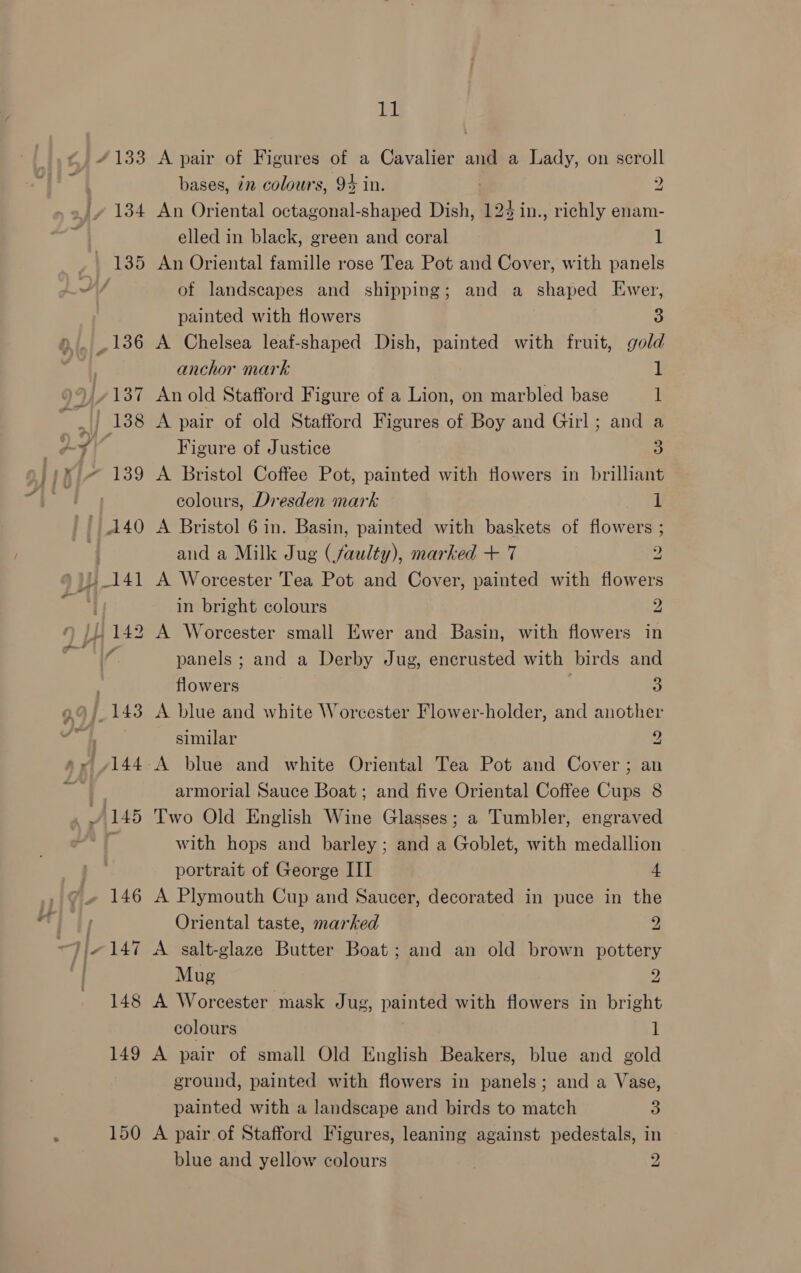 11
133 A pair of Figures of a Cavalier and a Lady, on scroll
bases, in colours, 9¾ in. 2
134 An Oriental octagonal-shaped Dish, 12¾ in., richly enam-
elled in black, green and coral 1
135 An Oriental famille rose Tea Pot and Cover, with panels
of landscapes and shipping; and a shaped Ewer,
painted with flowers 3
136 A Chelsea leaf-shaped Dish, painted with fruit, gold
anchor mark 1
137 An old Stafford Figure of a Lion, on marbled base 1
138 A pair of old Stafford Figures of Boy and Girl; and a
Figure of Justice 3
139 A Bristol Coffee Pot, painted with flowers in brilliant
colours, Dresden mark 1
140 A Bristol 6 in. Basin, painted with baskets of flowers;
and a Milk Jug (faulty), marked + 7 2
141 A Worcester Tea Pot and Cover, painted with flowers
in bright colours 2
142 A Worcester small Ewer and Basin, with flowers in
panels; and a Derby Jug, encrusted with birds and
flowers 3
143 A blue and white Worcester Flower-holder, and another
similar 2
144 A blue and white Oriental Tea Pot and Cover; an
armorial Sauce Boat; and five Oriental Coffee Cups 8
145 Two Old English Wine Glasses; a Tumbler, engraved
with hops and barley; and a Goblet, with medallion
portrait of George III 4
146 A Plymouth Cup and Saucer, decorated in puce in the
Oriental taste, marked 2
147 A salt-glaze Butter Boat; and an old brown pottery
Mug 2
148 A Worcester mask Jug, painted with flowers in bright
colours 1
149 A pair of small Old English Beakers, blue and gold
ground, painted with flowers in panels; and a Vase,
painted with a landscape and birds to match 3
150 A pair of Stafford Figures, leaning against pedestals, in
blue and yellow colours 2